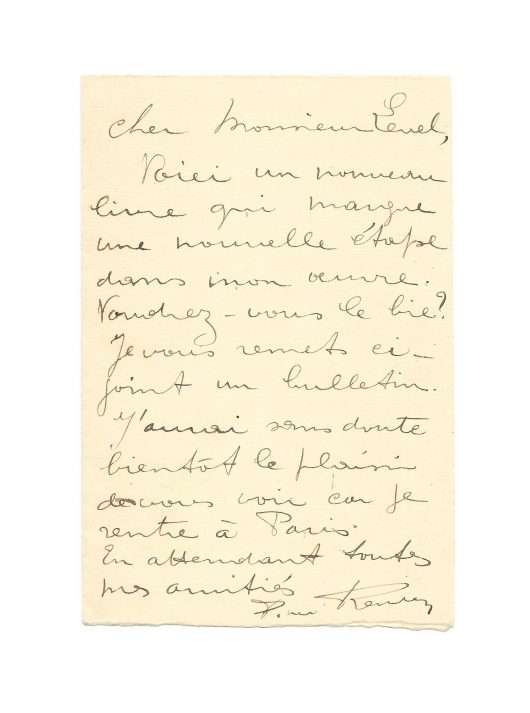 cher Monsieur Level,
Voici un nouveau
livre qui marque
une nouvelle étape
dans mon œuvre.
Voudrez-vous le lire?
Je vous remets ci-
joint un bulletin.
J'aurai sans doute
bientôt le plaisir
de vous voir car je
rentre à Paris.
En attendant toutes
mes amitiés